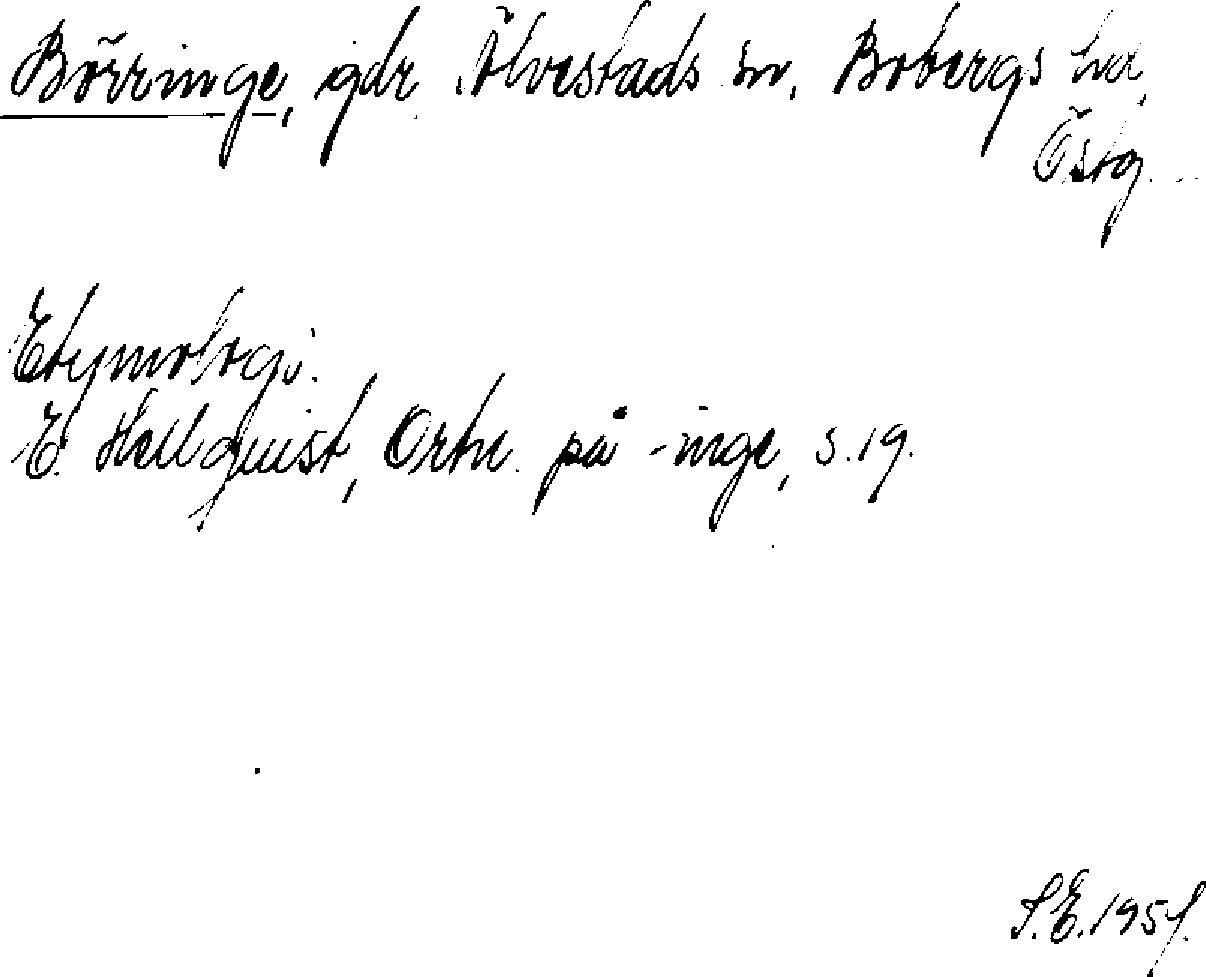 Börringe, gdr. Älvestads sn, Bobergs hd,
Östg.
Etymologi.
E. Hellquist, Ortn. på -inge, s. 19.
S.E.